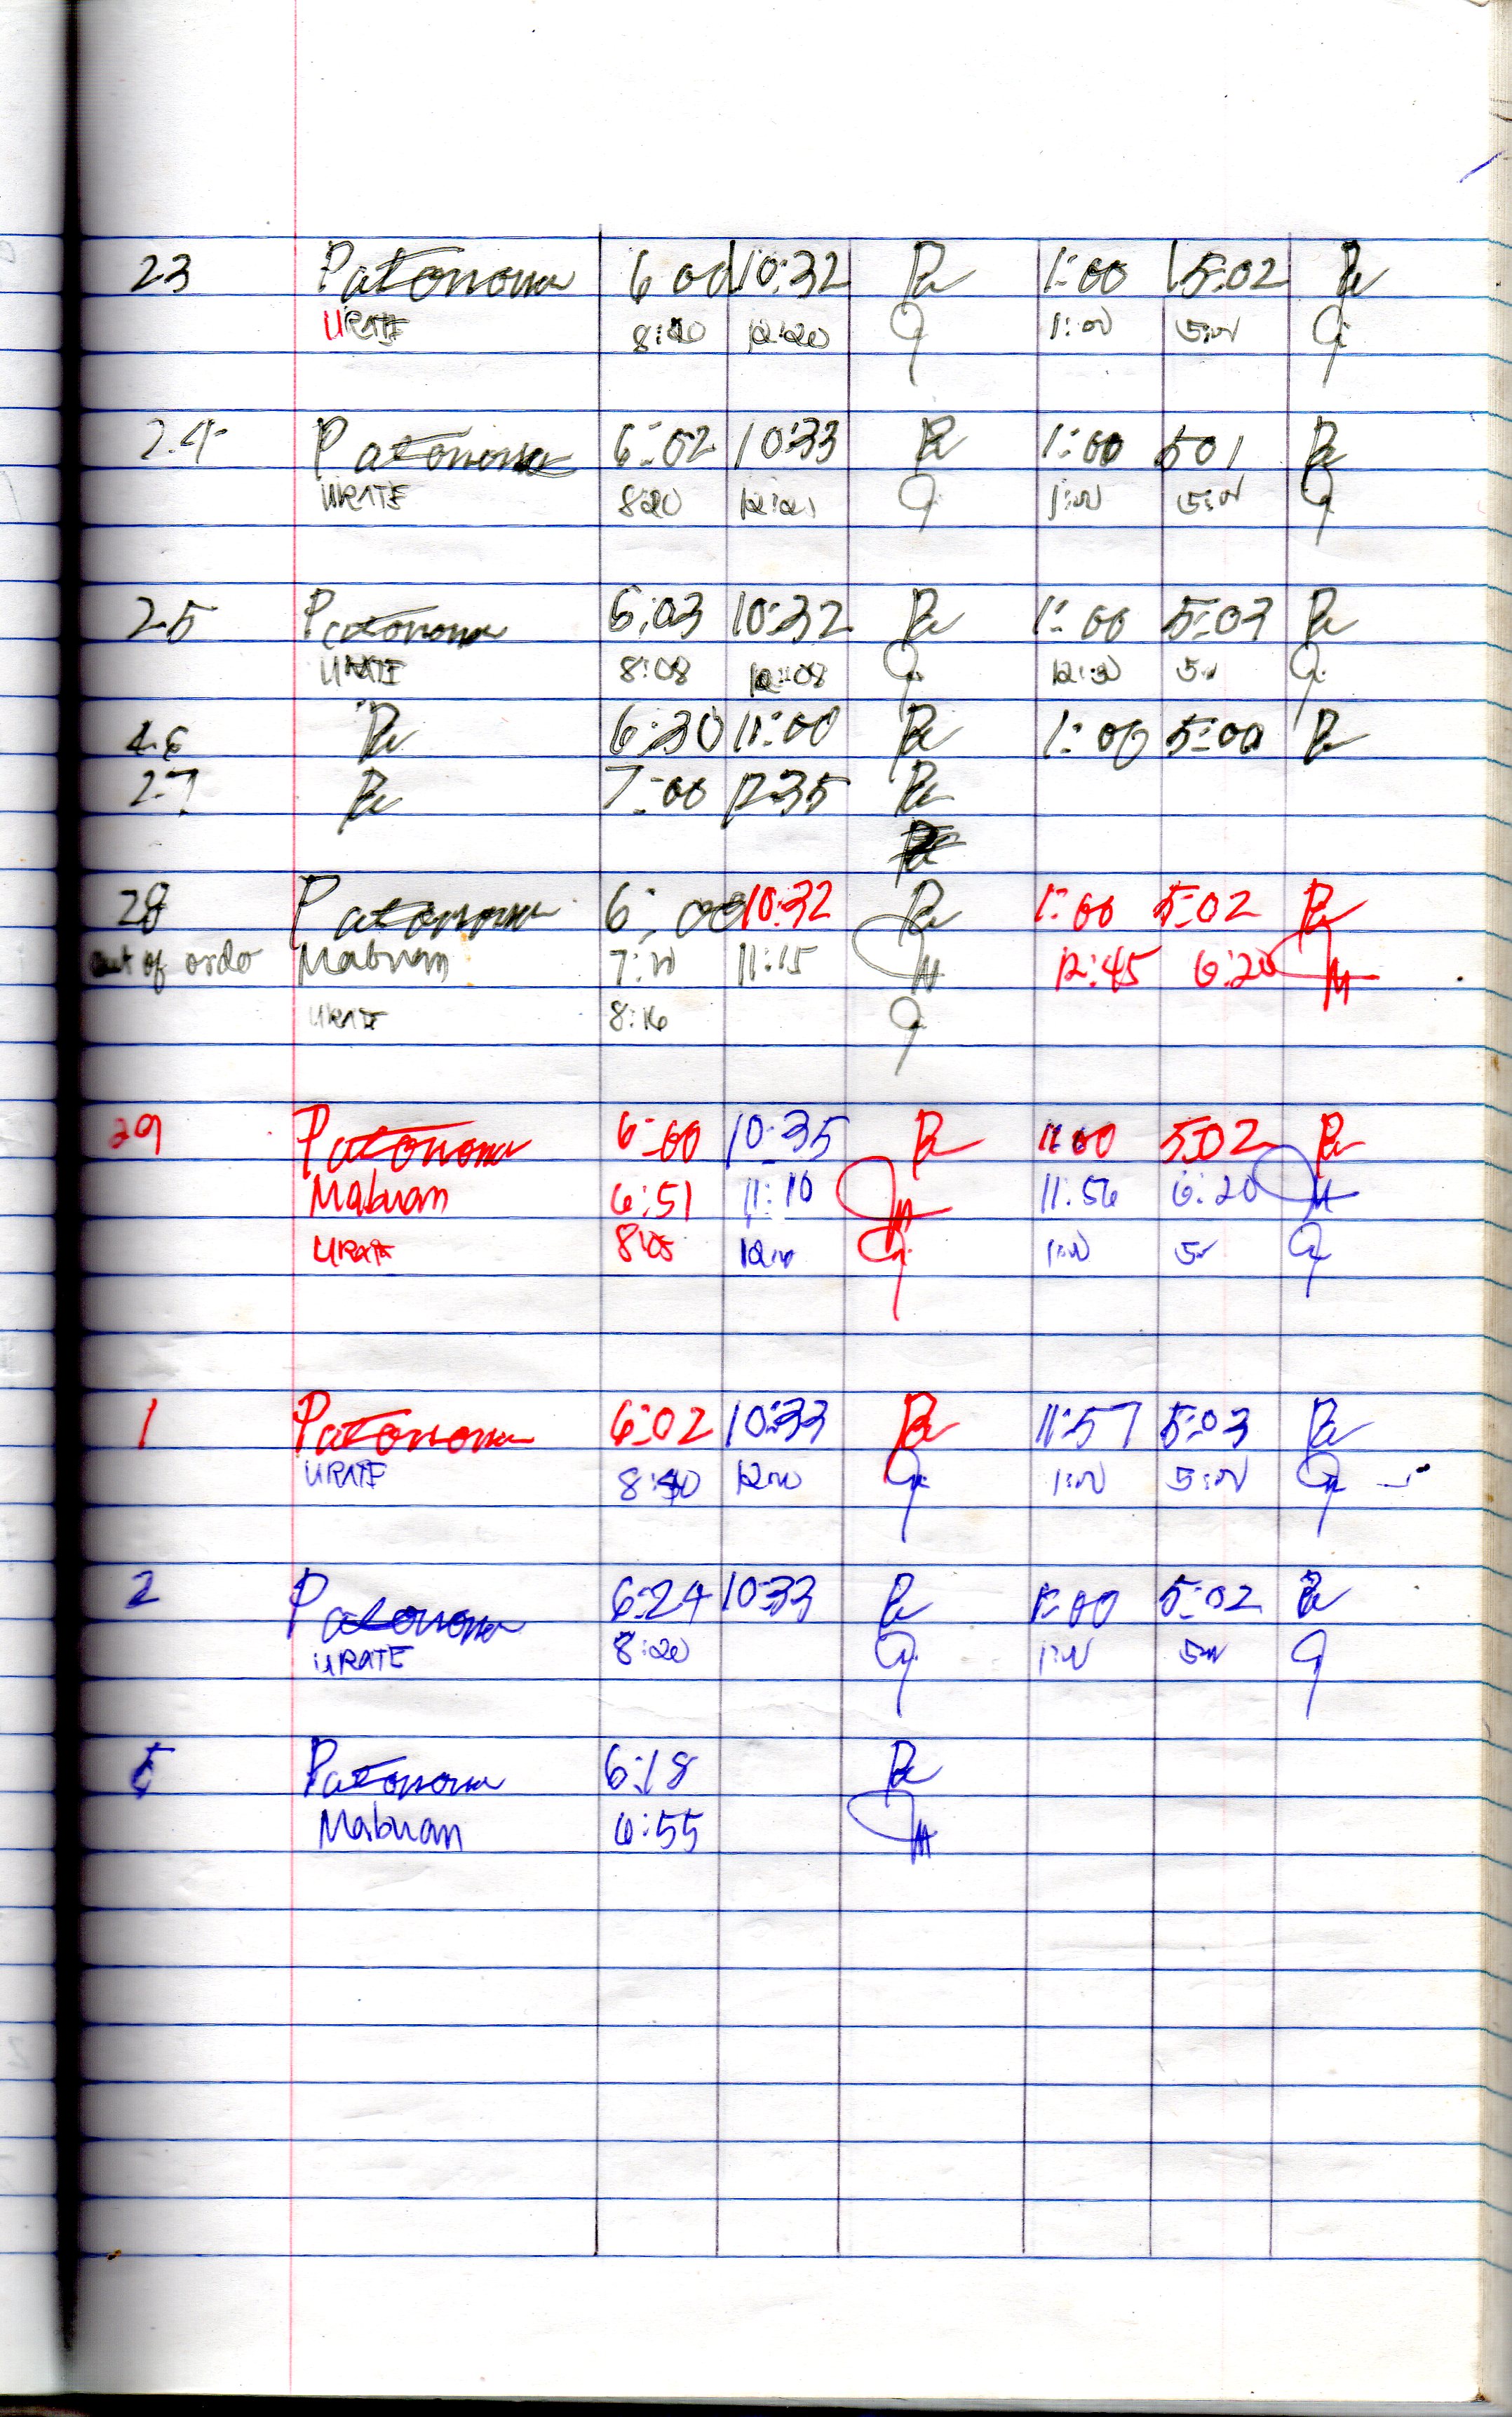 23 Patonona 6 00 10:32 Pa 1:00 5:02 Pa
URATE 8:20 12:20 1:00 5:00
24 Patonona 6:02 10:33 Pa 1:00 501 Pa
URATE 8:20 12:21 1:00 5:00
25 Patonona 6:03 10:32 Pa 1:00 5:03 Pa
URATE 8:08 12:08 12:30
Pa 6:30 11:00 Pa 1:00 5:00 Pa
27 Pa 7:00 12:35 Pa
28 Patonona 6:00 10:32 Pa 1:00 5:02 Pa
out of order Mabuan 11:15 12:45 6:20
URATE 8:16
29 Patonona 6:00 10:35 Pa 5:02 Pa
Mabuan 6:51 11:10 11:56 6:20
URATE 8:05 1:00
1 Patonona 6:02 10:33 Pa 11:57 5:03 Pa
URATE 1:00 5:00
2 Patonona 6:24 10:33 Pa 1:00 5:02 Pa
URATE 8:20 1:00
5 Patonona 6:18 Pa
Mabuan 6:55